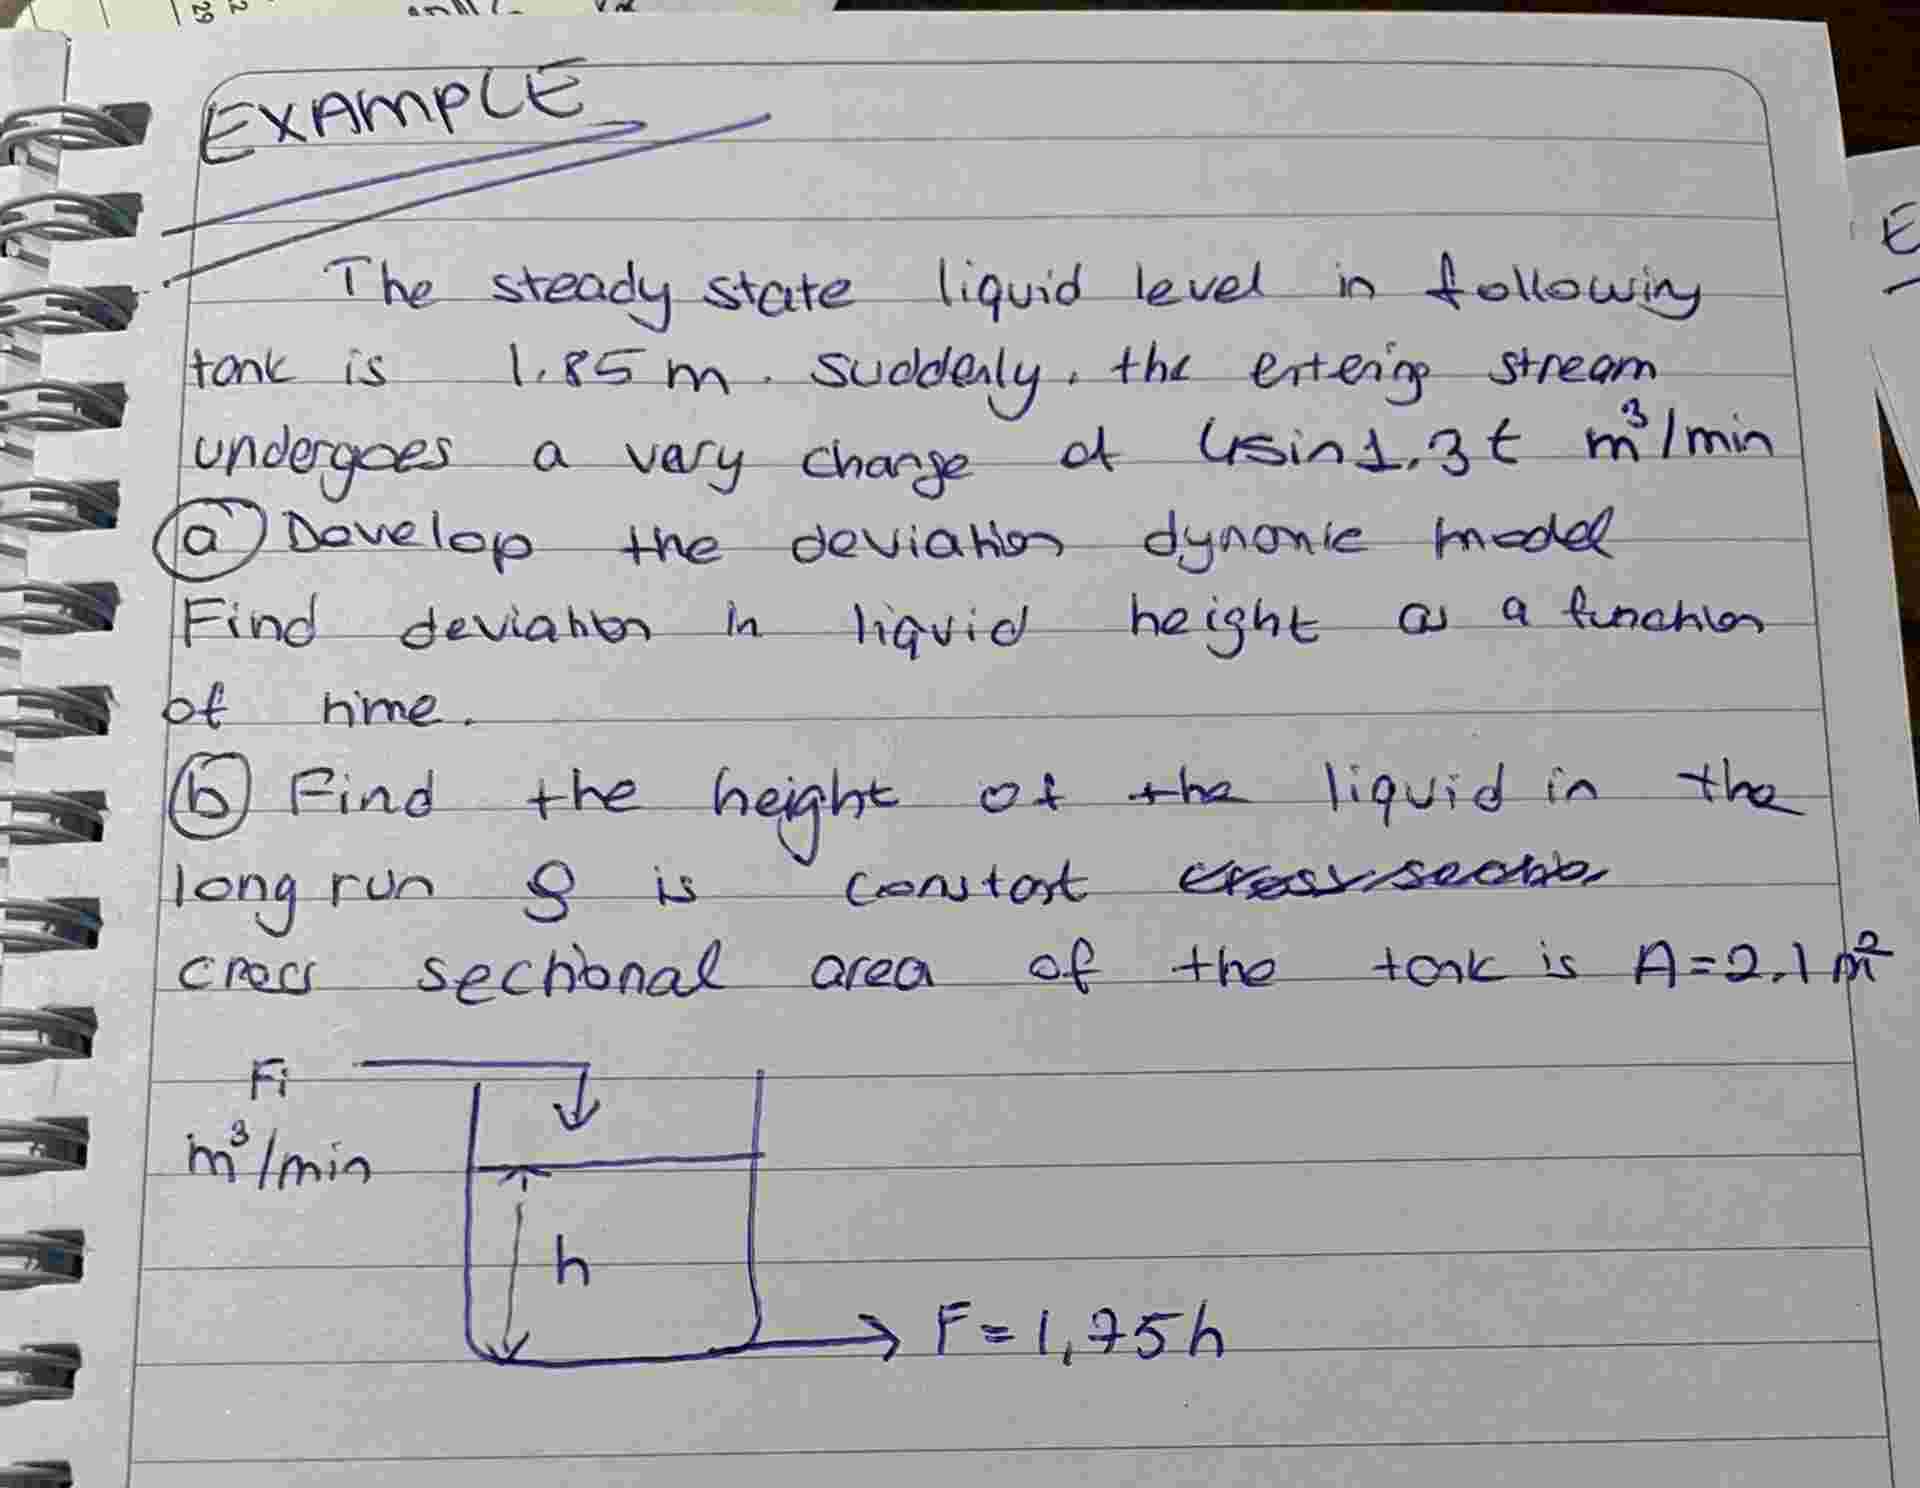 EXAMPLE
The steady state liquid level in following
tank is 1.85 m. Suddenly, the entering stream
undergoes a vary change of 4sin1.3t m³/min
a Develop the deviation dynamic model
Find deviation in liquid height as a function
of time.
b Find the height of the liquid in the
long run ρ is constant cross sectio
cross sectional area of the tank is A=2.1 m²
Fi
m³/min
h
F=1,75h
29
E